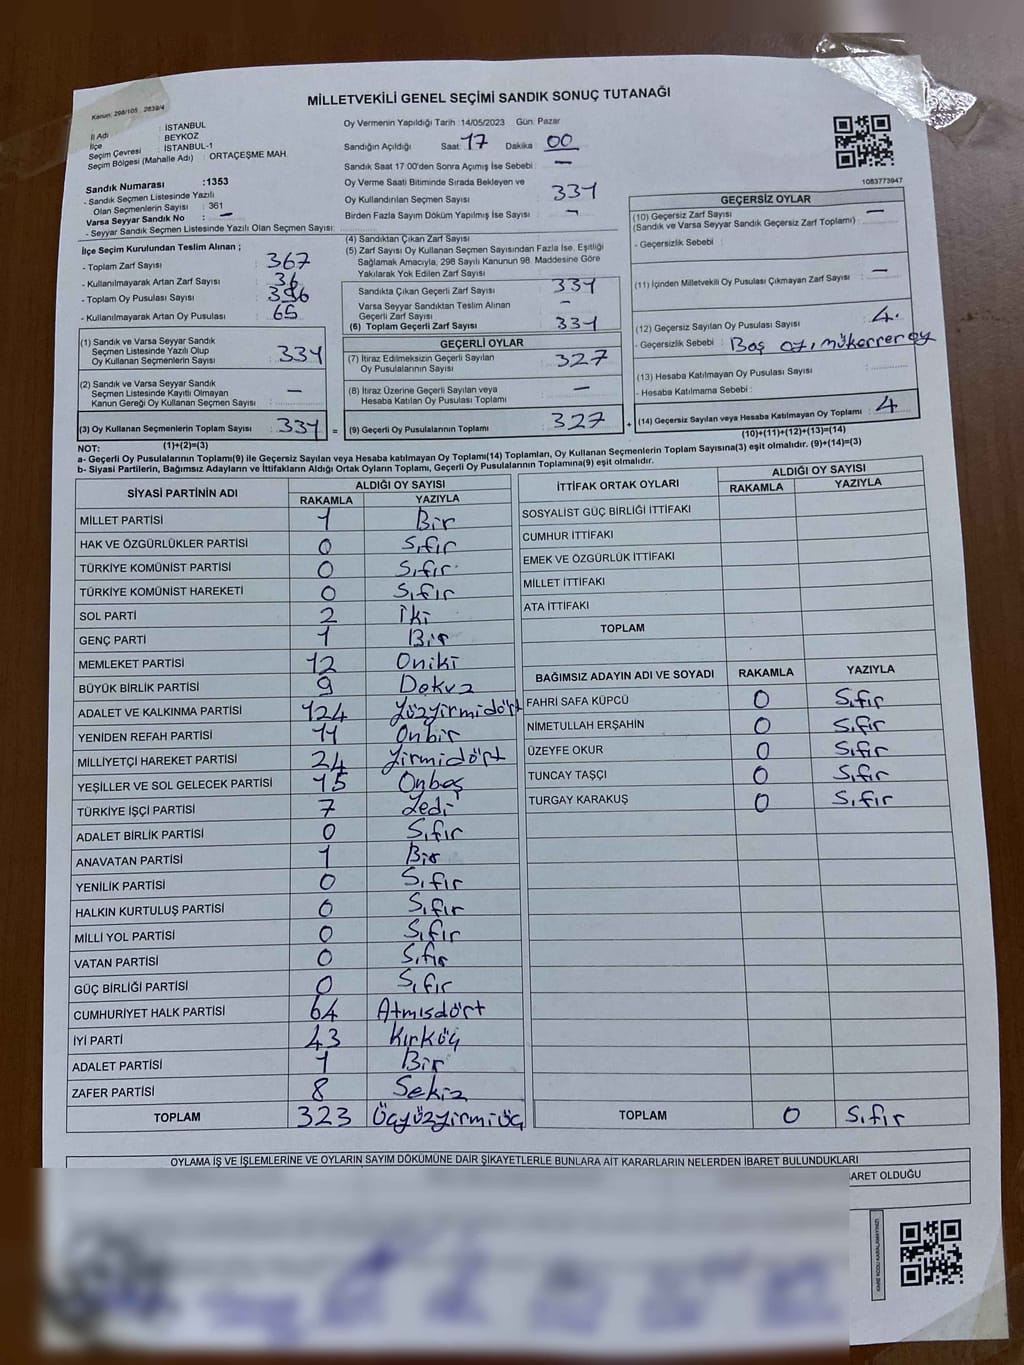 Kanun: 298/105 2839/4
MİLLETVEKİLİ GENEL SEÇİMİ SANDIK SONUÇ TUTANAĞI
İl Adı : İSTANBUL
İlçe : BEYKOZ
Seçim Çevresi : İSTANBUL-1
Seçim Bölgesi (Mahalle Adı) : ORTAÇEŞME MAH.
Sandık Numarası :1353
- Sandık Seçmen Listesinde Yazılı
Olan Seçmenlerin Sayısı : 361
Varsa Seyyar Sandık No : -
- Seyyar Sandık Seçmen Listesinde Yazılı Olan Seçmen Sayısı:
Oy Vermenin Yapıldığı Tarih :14/05/2023 Gün: Pazar
Sandığın Açıldığı Saat: 17 Dakika : 00
Sandık Saat 17:00'den Sonra Açılmış İse Sebebi : -
Oy Verme Saati Bitiminde Sırada Bekleyen ve
Oy Kullandırılan Seçmen Sayısı : 331
Birden Fazla Sayım Döküm Yapılmış İse Sayısı : -
1083773947
İlçe Seçim Kurulundan Teslim Alınan ;
- Toplam Zarf Sayısı : 367
- Kullanılmayarak Artan Zarf Sayısı : 36
- Toplam Oy Pusulası Sayısı : 396
- Kullanılmayarak Artan Oy Pusulası : 65
(1) Sandık ve Varsa Seyyar Sandık
Seçmen Listesinde Yazılı Olup
Oy Kullanan Seçmenlerin Sayısı : 331
(2) Sandık ve Varsa Seyyar Sandık
Seçmen Listesinde Kayıtlı Olmayan
Kanun Gereği Oy Kullanan Seçmen Sayısı : -
(3) Oy Kullanan Seçmenlerin Toplam Sayısı : 331
(1)+(2)=(3)
(4) Sandıktan Çıkan Zarf Sayısı :
(5) Zarf Sayısı Oy Kullanan Seçmen Sayısından Fazla İse, Eşitliği
Sağlamak Amacıyla, 298 Sayılı Kanunun 98. Maddesine Göre
Yakılarak Yok Edilen Zarf Sayısı :
Sandıkta Çıkan Geçerli Zarf Sayısı : 331
Varsa Seyyar Sandıktan Teslim Alınan
Geçerli Zarf Sayısı : -
(6) Toplam Geçerli Zarf Sayısı : 331
GEÇERLİ OYLAR
(7) İtiraz Edilmeksizin Geçerli Sayılan
Oy Pusulalarının Sayısı : 327
(8) İtiraz Üzerine Geçerli Sayılan veya
Hesaba Katılan Oy Pusulası Toplamı : -
= (9) Geçerli Oy Pusulalarının Toplamı : 327
GEÇERSİZ OYLAR
(10) Geçersiz Zarf Sayısı : -
(Sandık ve Varsa Seyyar Sandık Geçersiz Zarf Toplamı)
- Geçersizlik Sebebi :
(11) İçinden Milletvekili Oy Pusulası Çıkmayan Zarf Sayısı : -
(12) Geçersiz Sayılan Oy Pusulası Sayısı : 4.
- Geçersizlik Sebebi : Boş oy, mükerrer oy
(13) Hesaba Katılmayan Oy Pusulası Sayısı :
- Hesaba Katılmama Sebebi :
+ (14) Geçersiz Sayılan veya Hesaba Katılmayan Oy Toplamı : 4
(10)+(11)+(12)+(13)=(14)
NOT:
a- Geçerli Oy Pusulalarının Toplamı(9) ile Geçersiz Sayılan veya Hesaba katılmayan Oy Toplamı(14) Toplamları, Oy Kullanan Seçmenlerin Toplam Sayısına(3) eşit olmalıdır. (9)+(14)=(3)
b- Siyasi Partilerin, Bağımsız Adayların ve İttifakların Aldığı Ortak Oyların Toplamı, Geçerli Oy Pusulalarının Toplamına(9) eşit olmalıdır.
SİYASİ PARTİNİN ADI ALDIĞI OY SAYISI
RAKAMLA YAZIYLA
MİLLET PARTİSİ 1 Bir
HAK VE ÖZGÜRLÜKLER PARTİSİ 0 Sıfır
TÜRKİYE KOMÜNİST PARTİSİ 0 Sıfır
TÜRKİYE KOMÜNİST HAREKETİ 0 Sıfır
SOL PARTİ 2 İki
GENÇ PARTİ 1 Bir
MEMLEKET PARTİSİ 12 Oniki
BÜYÜK BİRLİK PARTİSİ 9 Dokuz
ADALET VE KALKINMA PARTİSİ 124 Yüzyirmidört
YENİDEN REFAH PARTİSİ 11 Onbir
MİLLİYETÇİ HAREKET PARTİSİ 24 Yirmidört
YEŞİLLER VE SOL GELECEK PARTİSİ 15 Onbeş
TÜRKİYE İŞÇİ PARTİSİ 7 Yedi
ADALET BİRLİK PARTİSİ 0 Sıfır
ANAVATAN PARTİSİ 1 Bir
YENİLİK PARTİSİ 0 Sıfır
HALKIN KURTULUŞ PARTİSİ 0 Sıfır
MİLLİ YOL PARTİSİ 0 Sıfır
VATAN PARTİSİ 0 Sıfır
GÜÇ BİRLİĞİ PARTİSİ 0 Sıfır
CUMHURİYET HALK PARTİSİ 64 Atmışdört
İYİ PARTİ 43 Kırküç
ADALET PARTİSİ 1 Bir
ZAFER PARTİSİ 8 Sekiz
TOPLAM 323 Üçyüzyirmiüç
İTTİFAK ORTAK OYLARI ALDIĞI OY SAYISI
RAKAMLA YAZIYLA
SOSYALİST GÜÇ BİRLİĞİ İTTİFAKI
CUMHUR İTTİFAKI
EMEK VE ÖZGÜRLÜK İTTİFAKI
MİLLET İTTİFAKI
ATA İTTİFAKI
TOPLAM
BAĞIMSIZ ADAYIN ADI VE SOYADI RAKAMLA YAZIYLA
FAHRİ SAFA KÜPCÜ 0 Sıfır
NİMETULLAH ERŞAHİN 0 Sıfır
ÜZEYFE OKUR 0 Sıfır
TUNCAY TAŞÇI 0 Sıfır
TURGAY KARAKUŞ 0 Sıfır
TOPLAM 0 Sıfır
OYLAMA İŞ VE İŞLEMLERİNE VE OYLARIN SAYIM DÖKÜMÜNE DAİR ŞİKAYETLERLE BUNLARA AİT KARARLARIN NELERDEN İBARET BULUNDUKLARI
BARET OLDUĞU